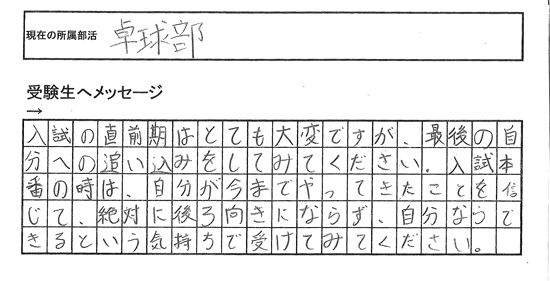 現在の所属部活 卓球部
受験生へメッセージ
→
入試の直前期はとても大変ですが、最後の自
分への追い込みをしてみてください。入試本
番の時は、自分が今までやってきたことを信
じて、絶対に後ろ向きにならず、自分ならで
きるという気持ちで受けてみてください。